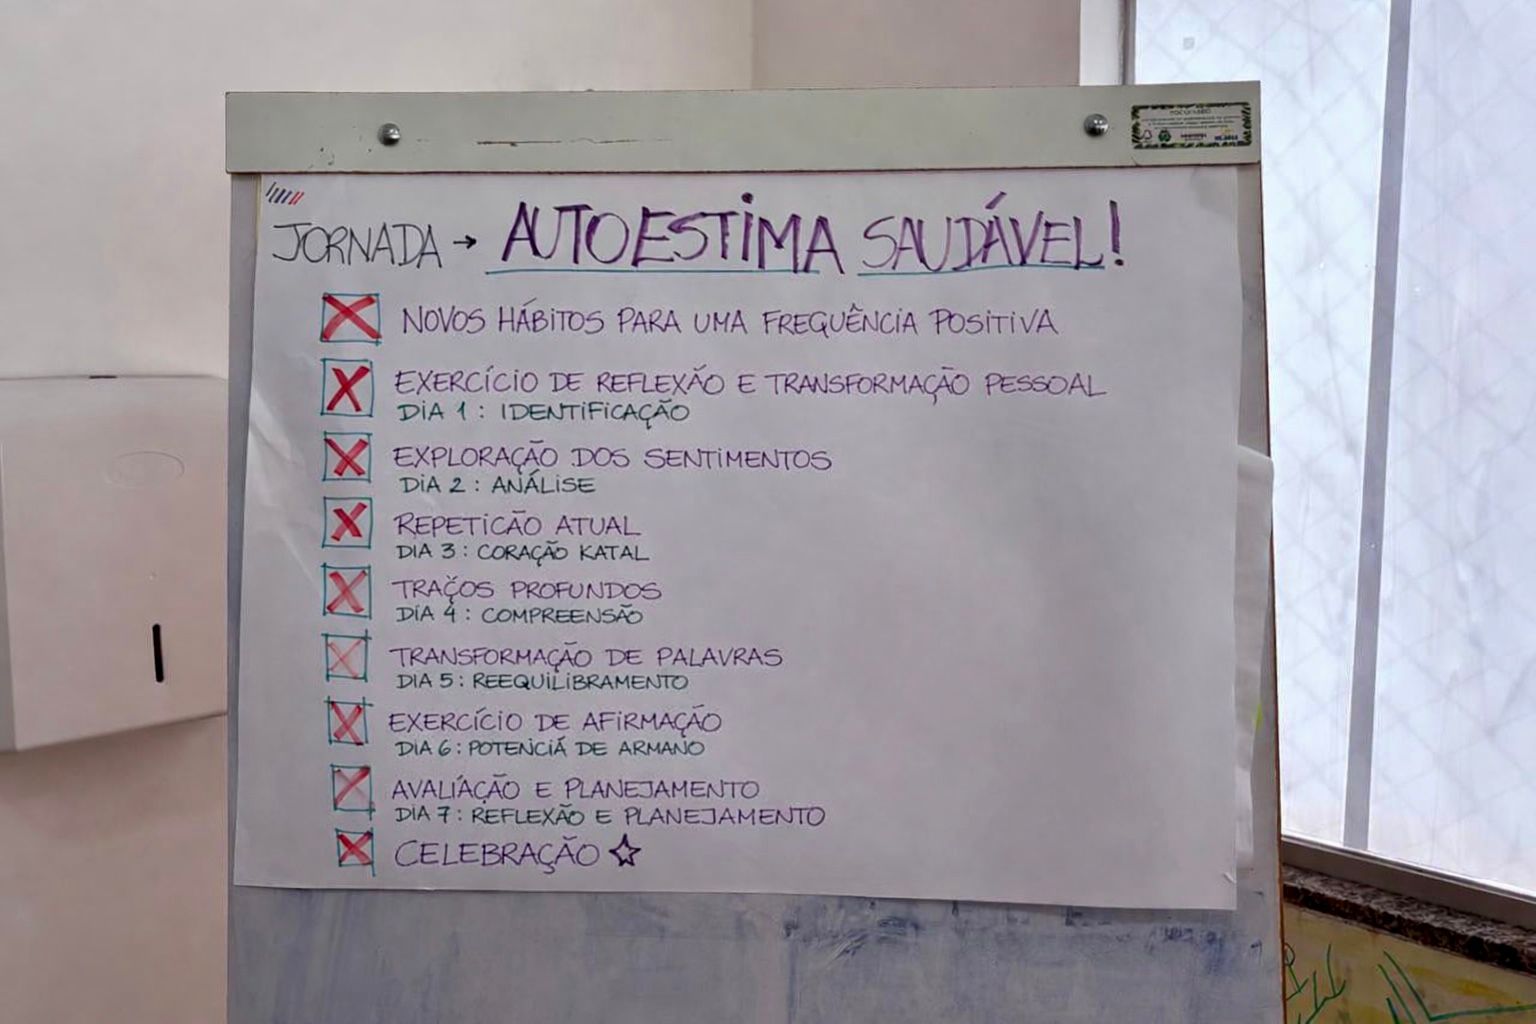 JORNADA → AUTOESTIMA SAUDÁVEL!
NOVOS HÁBITOS PARA UMA FREQUÊNCIA POSITIVA
EXERCÍCIO DE REFLEXÃO E TRANSFORMAÇÃO PESSOAL
DIA 1 : IDENTIFICAÇÃO
EXPLORAÇÃO DOS SENTIMENTOS
DIA 2 : ANÁLISE
REPETICÃO ATUAL
DIA 3 : CORAÇÃO KATAL
TRAÇOS PROFUNDOS
DIA 4 : COMPREENSÃO
TRANSFORMAÇÃO DE PALAVRAS
DIA 5 : REEQUILIBRAMENTO
EXERCÍCIO DE AFIRMAÇÃO
DIA 6 : POTENCIÁ DE ARMANO
AVALIÁÇÃO E PLANEJAMENTO
DIA 7 : REFLEXÃO E PLANEJAMENTO
CELEBRAÇÃO ☆